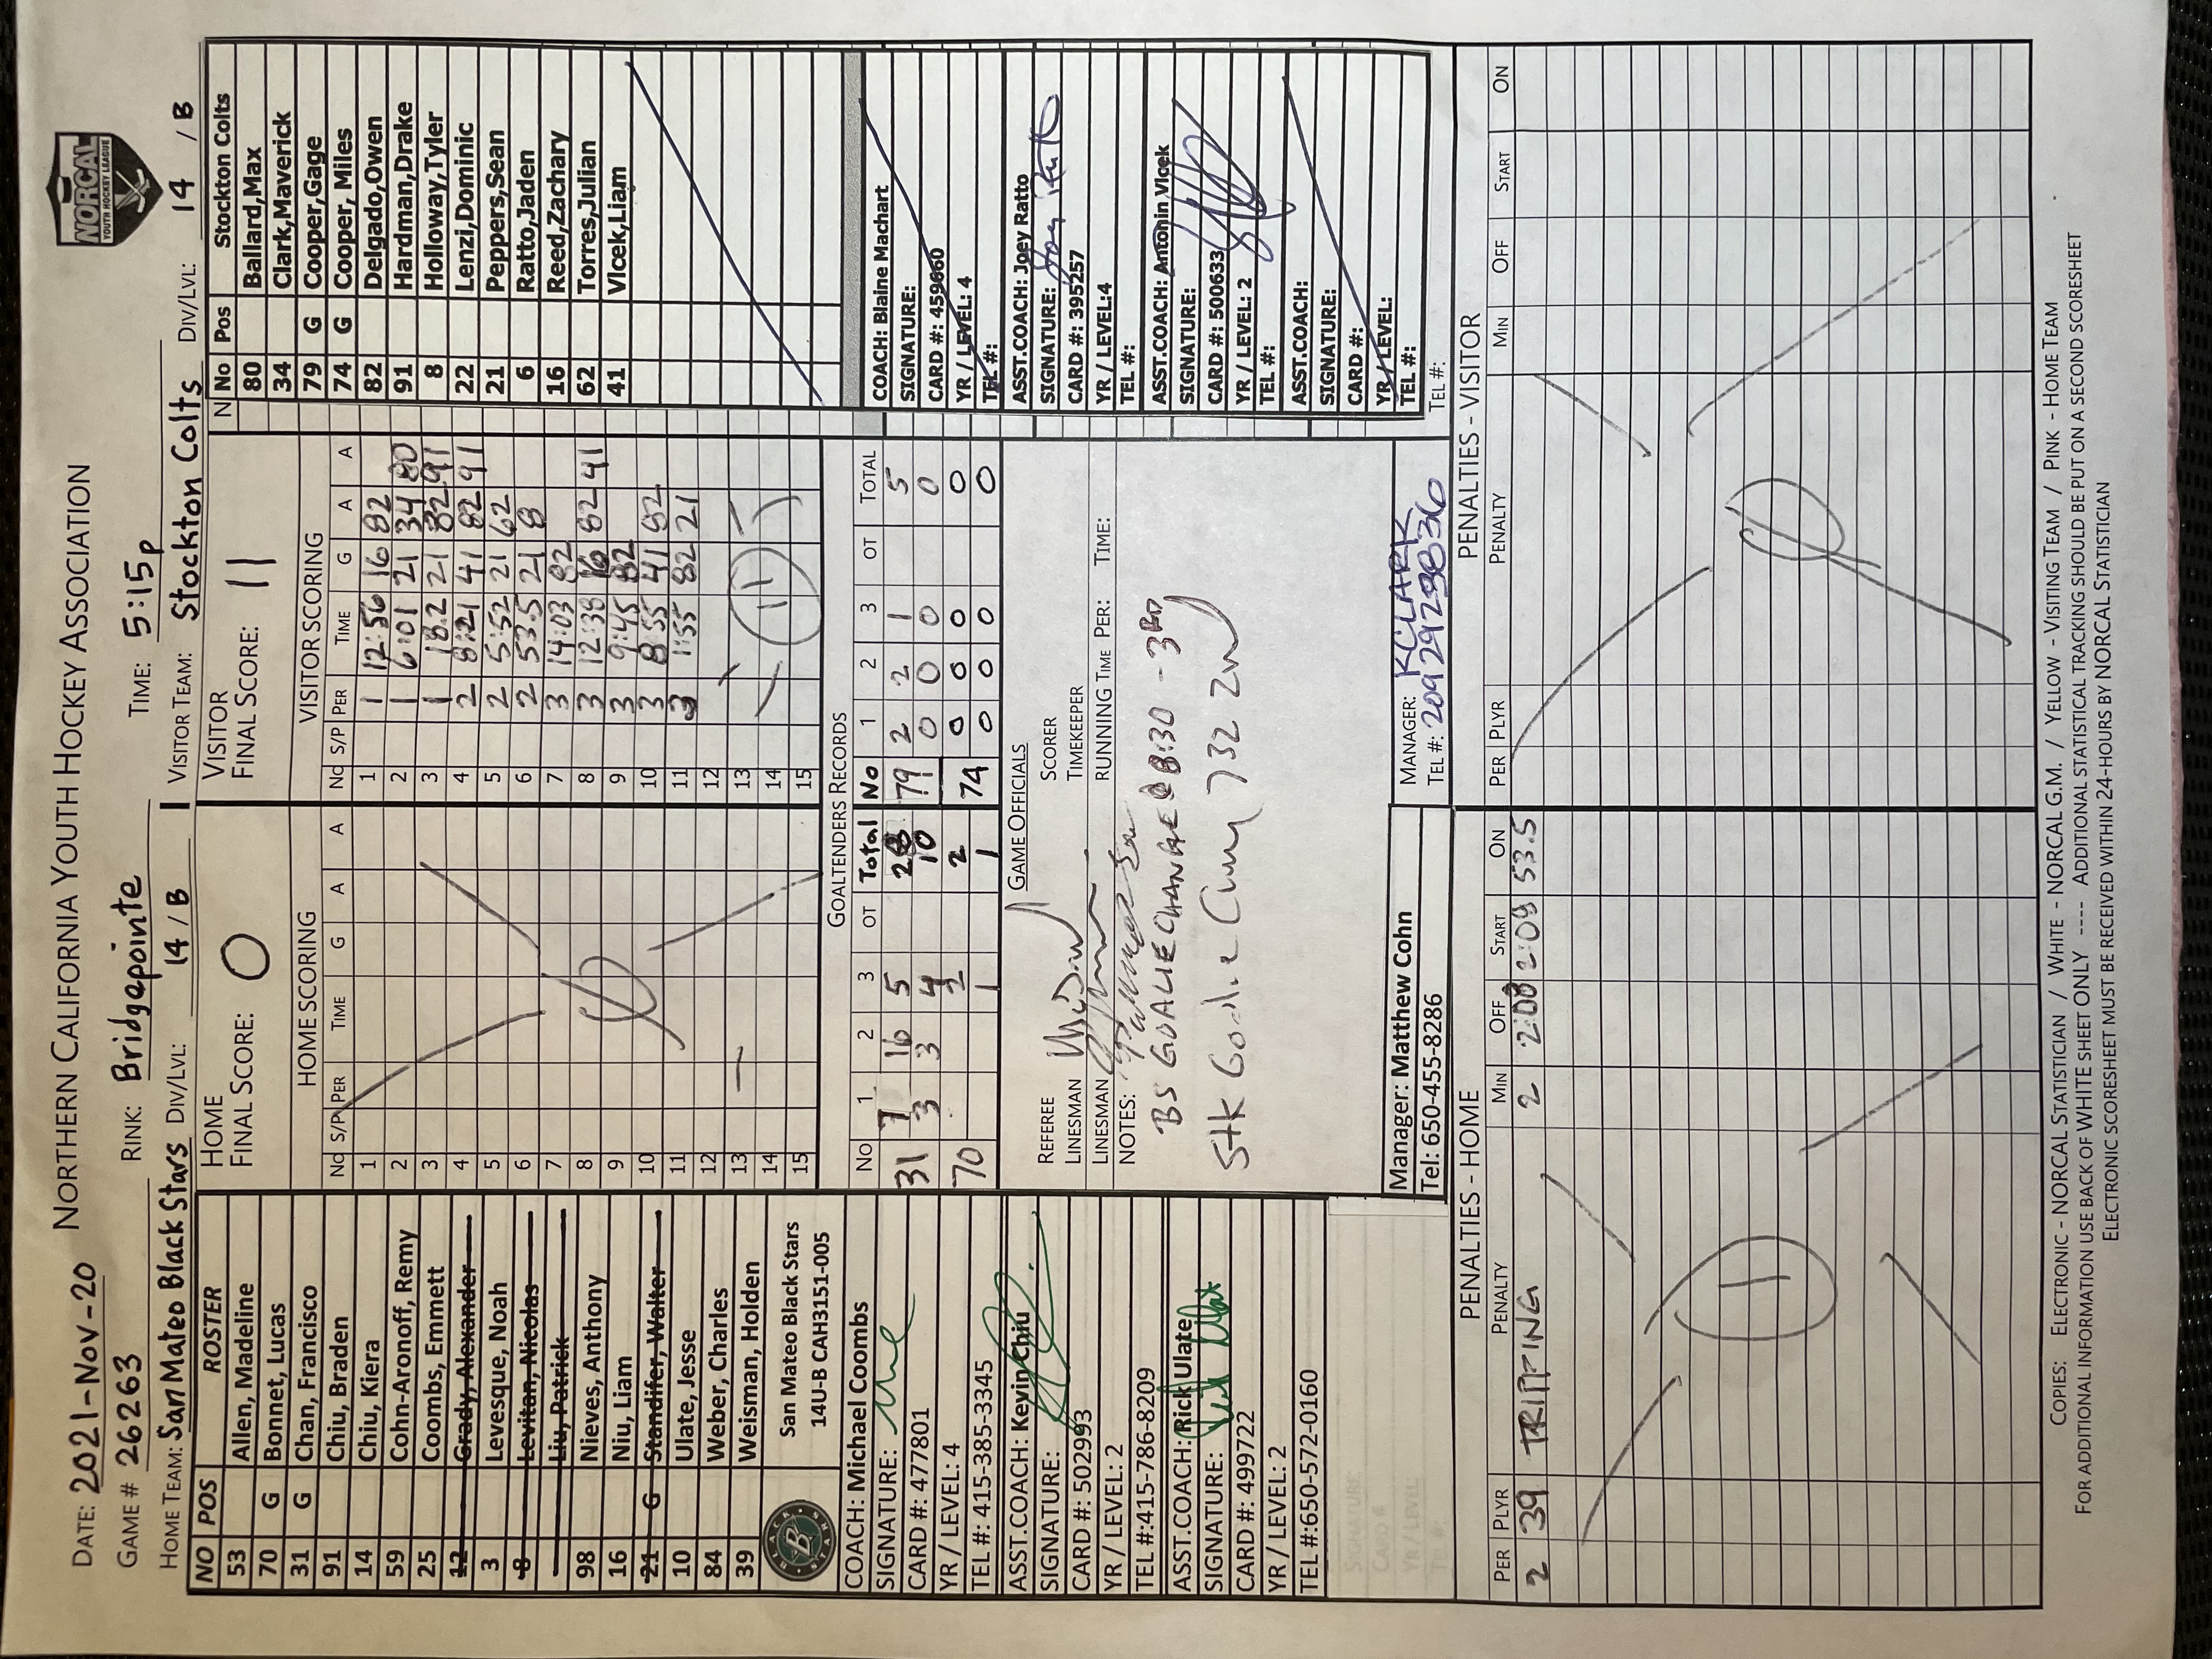 DATE: 2021-Nov-20 NORTHERN CALIFORNIA YOUTH HOCKEY ASSOCIATION
NORCAL
YOUTH HOCKEY LEAGUE
GAME # 26263 RINK: Bridgepointe TIME: 5:15p
HOME TEAM: San Mateo Black Stars DIV/LVL: 14 / B VISITOR TEAM: Stockton Colts DIV/LVL: 14 / B
NO POS ROSTER
53 Allen, Madeline
70 G Bonnet, Lucas
31 G Chan, Francisco
91 Chiu, Braden
14 Chiu, Kiera
59 Cohn-Aronoff, Remy
25 Coombs, Emmett
12 Grady, Alexander
3 Levesque, Noah
8 Levitan, Nicolas
Liu, Patrick
98 Nieves, Anthony
16 Niu, Liam
21 G Standifer, Walter
10 Ulate, Jesse
84 Weber, Charles
39 Weisman, Holden
San Mateo Black Stars
14U-B CAH3151-005
COACH: Michael Coombs
SIGNATURE:
CARD #: 477801
YR / LEVEL: 4
TEL #: 415-385-3345
ASST.COACH: Kevin Chiu
SIGNATURE:
CARD #: 502993
YR / LEVEL: 2
TEL #:415-786-8209
ASST.COACH: Rick Ulate
SIGNATURE:
CARD #: 499722
YR / LEVEL: 2
TEL #:650-572-0160
SIGNATURE
CARD #
YR / LEVEL
TEL #:
HOME
FINAL SCORE: 0
HOME SCORING
No S/P PER TIME G A A
1
2
3
4
5
6
7
8
9
10
11
12
13
14
15
VISITOR
FINAL SCORE: 11
VISITOR SCORING
No S/P PER TIME G A A
1 1 12:56 16 82
2 1 6:01 21 34 80
3 1 18.2 21 82 91
4 2 8:21 41 82 91
5 2 5:52 21 62
6 2 53.5 21 8
7 3 14:03 82
8 3 12:38 16 82 41
9 3 9:45 82
10 3 8:55 41 82
11 3 1:55 82 21
12
13
14 11
15
GOALTENDERS RECORDS
No 1 2 3 OT Total No 1 2 3 OT TOTAL
31 7 16 5 28 79 2 2 1 5
3 3 4 10 0 0 0 0
70 2 2 74 0 0 0 0
1 1 0 0 0 0
GAME OFFICIALS
REFEREE SCORER
LINESMAN TIMEKEEPER
LINESMAN RUNNING TIME PER: TIME:
NOTES:
BS GOALIE CHANGE @ 8:30 - 3RD
Stk Goalie
Manager: Matthew Cohn
Tel: 650-455-8286
MANAGER: K CLARK
TEL #: 209 292 9836
N No Pos Stockton Colts
80 Ballard,Max
34 Clark,Maverick
79 G Cooper,Gage
74 G Cooper, Miles
82 Delgado,Owen
91 Hardman,Drake
8 Holloway,Tyler
22 Lenzi,Dominic
21 Peppers,Sean
6 Ratto,Jaden
16 Reed,Zachary
62 Torres,Julian
41 Vlcek,Liam
COACH: Blaine Machart
SIGNATURE:
CARD #: 459660
YR / LEVEL: 4
TEL #:
ASST.COACH: Joey Ratto
SIGNATURE: Joey Ratto
CARD #: 395257
YR / LEVEL:4
TEL #:
ASST.COACH: Antonin Vlcek
SIGNATURE:
CARD #: 500633
YR / LEVEL: 2
TEL #:
ASST.COACH:
SIGNATURE:
CARD #:
YR / LEVEL:
TEL #:
TEL #:
PENALTIES - HOME
PER PLYR PENALTY MIN OFF START ON
2 39 TRIPPING 2 2:08 2:09 53.5
1
PENALTIES - VISITOR
PER PLYR PENALTY MIN OFF START ON
COPIES: ELECTRONIC - NORCAL STATISTICIAN / WHITE - NORCAL G.M. / YELLOW - VISITING TEAM / PINK - HOME TEAM
FOR ADDITIONAL INFORMATION USE BACK OF WHITE SHEET ONLY ---- ADDITIONAL STATISTICAL TRACKING SHOULD BE PUT ON A SECOND SCORESHEET
ELECTRONIC SCORESHEET MUST BE RECEIVED WITHIN 24-HOURS BY NORCAL STATISTICIAN